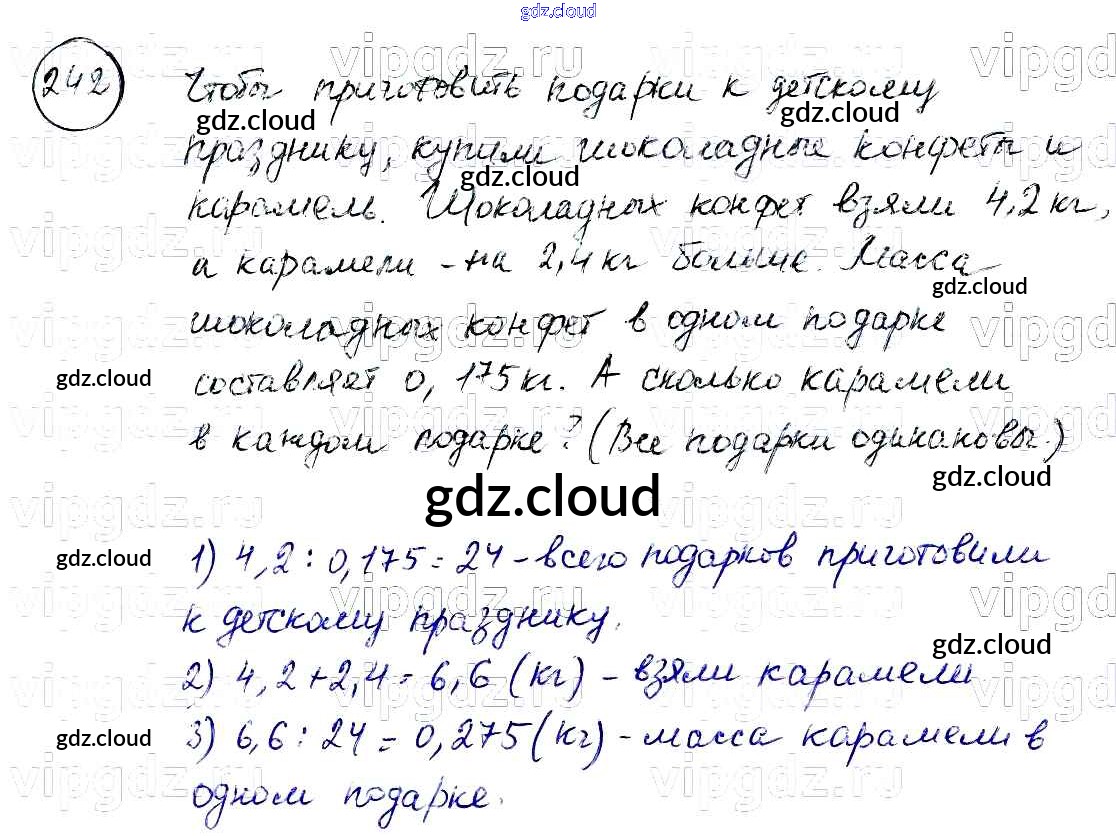 gdz.cloud
242 Чтобы приготовить подарки к детскому
празднику, купили шоколадные конфеты и
карамель. Шоколадных конфет взяли 4,2 кг,
а карамели - на 2,4 кг больше. Масса
шоколадных конфет в одном подарке
составляет 0,175 кг. А сколько карамели
в каждом подарке? (Все подарки одинаковы.)
gdz.cloud
1) 4,2 : 0,175 = 24 - всего подарков приготовили
к детскому празднику.
2) 4,2 + 2,4 = 6,6 (кг) - взяли карамели
3) 6,6 : 24 = 0,275 (кг) - масса карамели в
одном подарке.